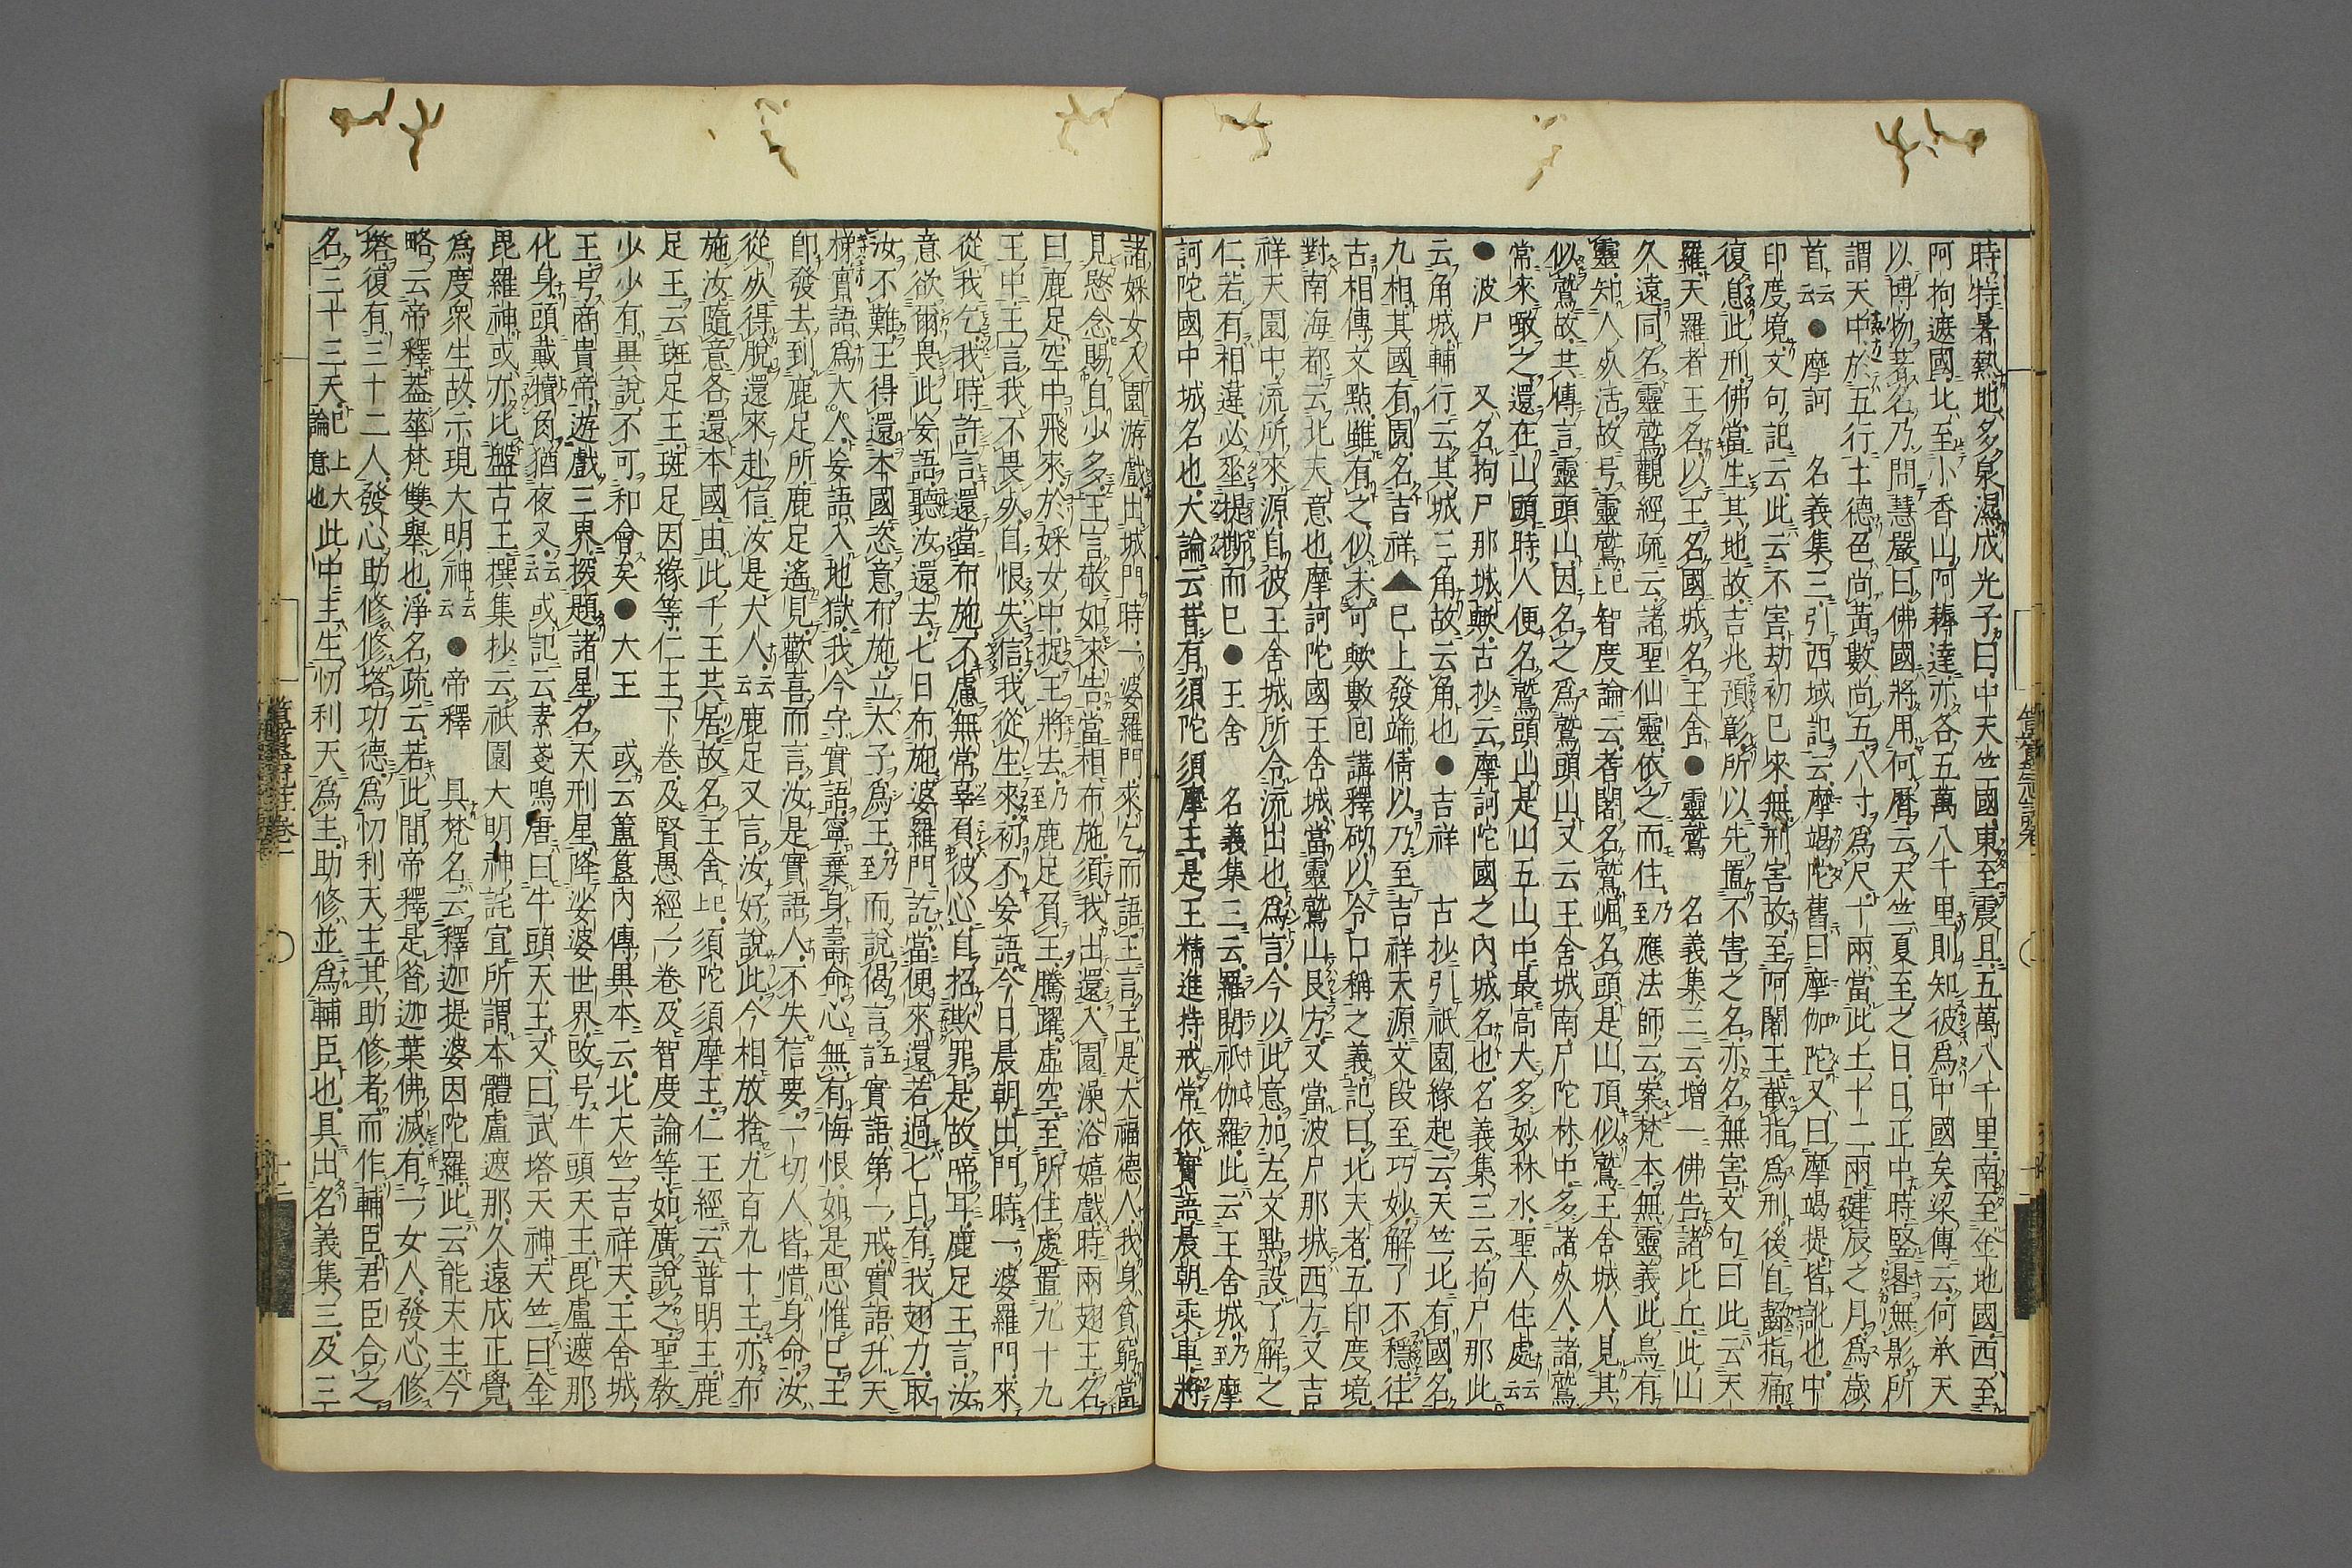 時特暑熱地多泉濕戌光子曰中天竺國東至震旦五萬八千里南至金地國西至
阿拘遮國北至小香山阿耨達亦各五萬八千里則知彼爲中國矣梁傳云何承天
以博物著名乃問慧嚴曰佛國將用何曆云天竺夏至之日日正中時竪晷無影所
謂天中於五行土德色尚黃數尚五八寸爲尺十兩當此土十二兩建辰之月爲歲
首云云●摩訶 名義集三引西域記云摩竭陀舊曰摩伽陀又曰摩竭提皆訛也中
印度境文句記云此云不害劫初已來無刑害故至阿闍王截指爲刑後自齧指痛
復息此刑佛當生其地故吉兆預彰所以先置不害之名亦名無害文句曰此云天
羅天羅者王名以王名國城名王舍●靈鷲 名義集三云增一佛告諸比丘此山
久遠同名靈鷲觀經疏云諸聖仙靈依之而住乃至應法師云案梵本無靈義此鳥有
靈知人死活故号靈鷲已上智度論云耆闍名鷲崛名頭是山頂似鷲王舍城人見其
似鷲故共傳言靈頭山因名之爲鷲頭山又云王舍城南尸陀林中多諸死人諸鷲
常來噉之還在山頭時人便名鷲頭山是山五山中最高大多妙林水聖人住處云云
●波尸 又名拘尸那城歟古抄云摩訶陀國之內城名也名義集三云拘尸那此
云角城輔行云其城三角故云角也●吉祥 古抄引祇園緣起云天竺北有國名
九相其國有園名吉祥▲已上發端倩以乃至吉祥天源文段至巧妙解了不穩往
古相傳文點雖有之似未可歟數回講釋砌以令口稱之義記曰北天者五印度境
對南海都云北天意也摩訶陀國王舍城當靈鷲山艮方又當波尸那城西方又吉
祥天園中流所來源自彼王舍城所令流出也爲言今以此意加左文點設了解之
仁若有相違必垂提撕而已●王舍 名義集三云羅閱祇伽羅此云王舍城乃至摩
訶陀國中城名也大論云昔有須陀須摩王是王精進持戒常依實語晨朝乘車將
諸婇女入園游戲出城門時一婆羅門來乞而語王言王是大福德人我身貧窮當
見愍念賜自少多王言敬如來告當相布施須我出還入園澡浴嬉戲時兩翅王名
曰鹿足空中飛來於婇女中捉王將去乃至鹿足負王騰躍虛空至所住處置九十九
王中王言我不畏死自恨失信我從生來初不妄語今日晨朝出門時一婆羅門來
從我乞我時許言還當布施不慮無常辜負彼心自招欺罪是故啼耳鹿足王言汝
意欲爾畏此妄語聽汝還去七日布施婆羅門訖當便來還若過七日有我翅力取
汝不難王得還本國恣意布施立太子爲王乃至而說偈言五實語第一戒實語升天
梯實語爲大人妄語入地獄我今守實語寧棄身壽命心無有悔恨如是思惟已王
即發去到鹿足所鹿足遙見歡喜而言汝是實語人不失信要一切人皆惜身命汝
從死得脫還來赴信汝是大人云云鹿足又言汝好說此今相放捨九百九十王亦布
施汝隨意各還本國由此千王其居故名王舍已上須陀須摩王仁王經云普明王鹿
足王云斑足王斑足因緣等仁王下卷及賢愚經一卷及智度論等如廣說之聖敎
少少有異說不可和會矣●大王 或云簠簋內傳異本云北天竺吉祥天王舍城
王号商貴帝游戲三界探題諸星名天刑星降娑婆世界改号牛頭天王毘盧遮那
化身頭戴犢角猶夜叉云云或記云素戔嗚唐曰牛頭天王又曰武塔天神天竺曰金
毘羅神或亦比盤古王撰集抄云祇園大明神託宣所謂本體盧遮那久遠成正覺
爲度衆生故示現大明神云云●帝釋 具梵名云釋迦提婆因陀羅此云能天主今
略云帝釋蓋華梵雙舉也淨名疏云若此間帝釋是昔迦葉佛滅有一女人發心修
塔復有三十二人發心助修修塔功德爲忉利天主其助修者而作輔臣君臣合之
名三十三天已上大論意也此中主生忉利天爲主助修並爲輔臣也具出名義集三及三